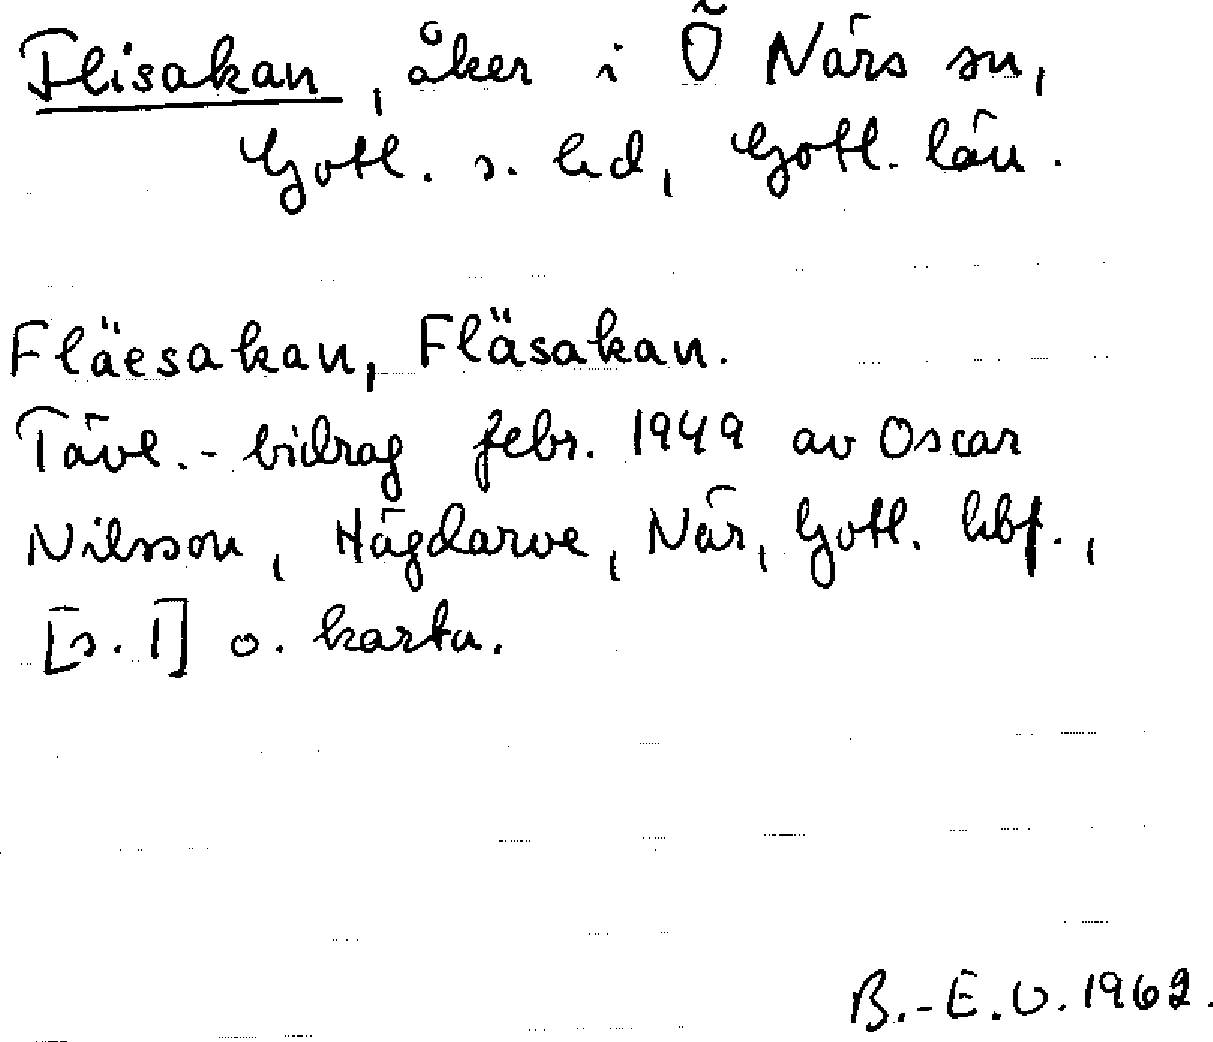 Flisakan, åker i Ö När sn,
Gotl. s. hd, Gotl. län.
Fläesakan, Fläsakan.
Tävl.-bidrag febr. 1949 av Oscar
Nilsson, Hägdarve, När, Gotl. hbf.,
[s. 1] o. karta.
B.-E.O. 1962.